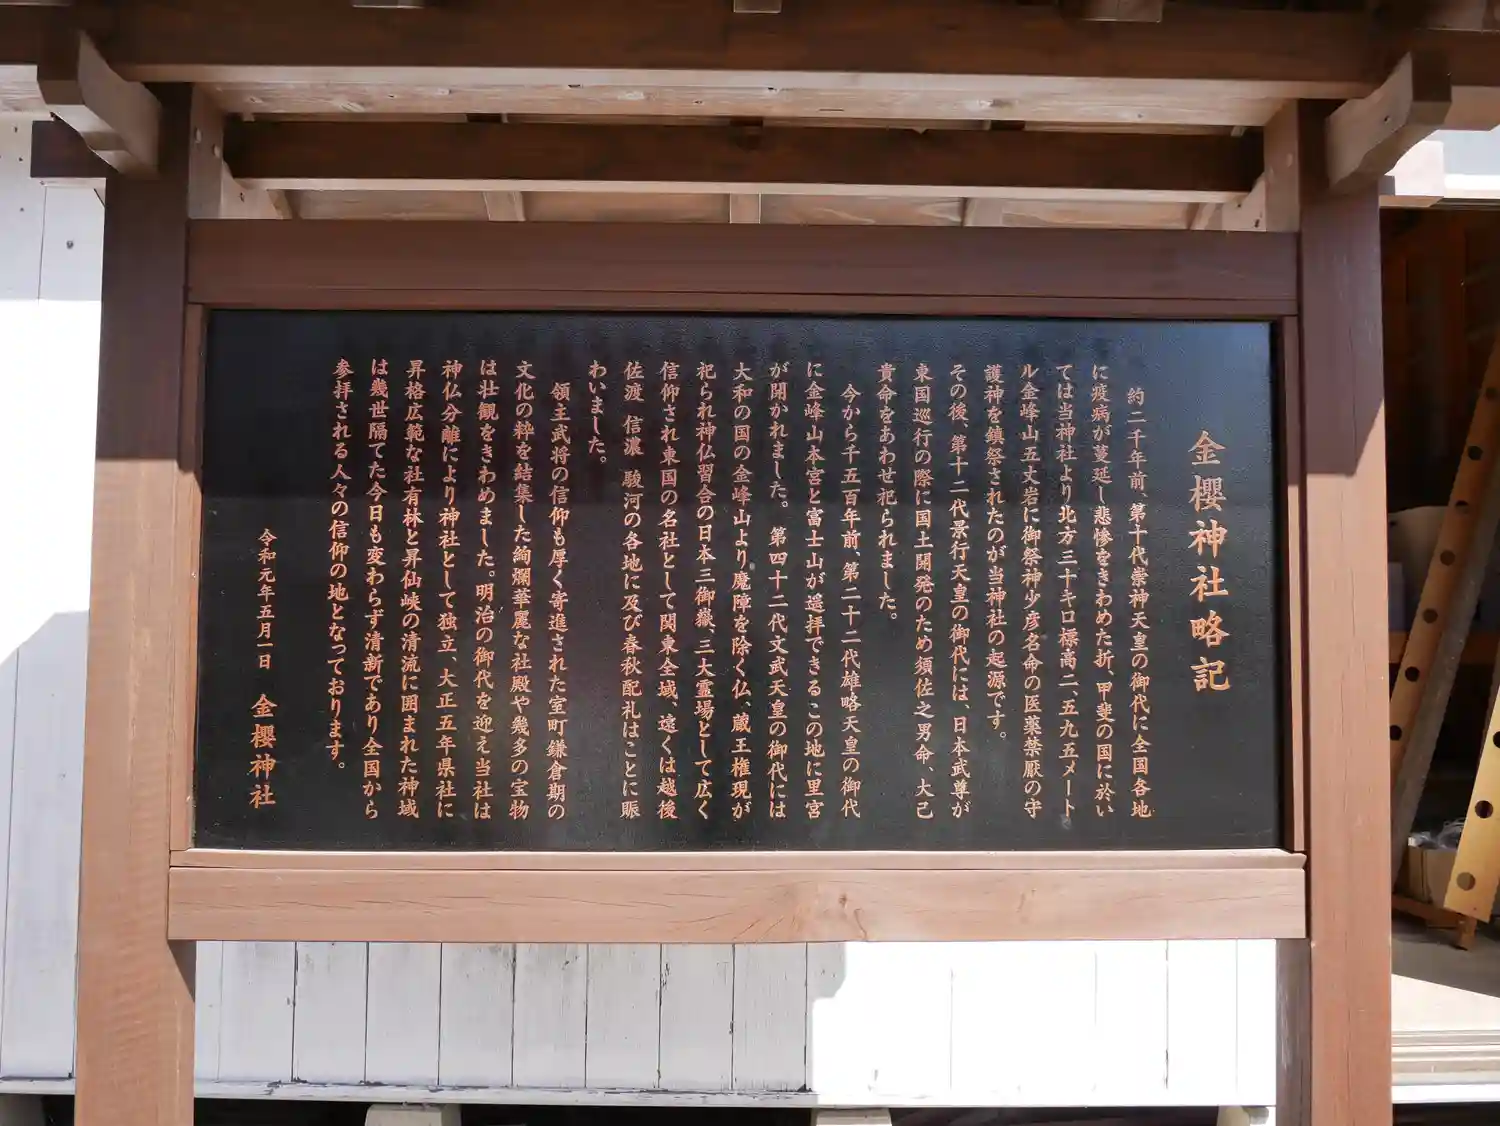 金櫻神社略記
約二千年前、第十代崇神天皇の御代に全国各地
に疫病が蔓延し悲惨をきわめた折、甲斐の国に於い
ては当神社より北方三十キロ標高二、五九五メート
ル金峰山五丈岩に御祭神少彦名命の医薬禁厭の守
護神を鎮祭されたのが当神社の起源です。
その後、第十二代景行天皇の御代には、日本武尊が
東国巡行の際に国土開発のため須佐之男命、大己
貴命をあわせ祀られました。
今から千五百年前、第二十二代雄略天皇の御代
に金峰山本宮と富士山が遥拝できるこの地に里宮
が開かれました。第四十二代文武天皇の御代には
大和の国の金峰山より魔障を除く仏、蔵王権現が
祀られ神仏習合の日本三御嶽、三大霊場として広く
信仰され東国の名社として関東全域、遠くは越後
佐渡 信濃 駿河の各地に及び春秋配礼はことに賑
わいました。
領主武将の信仰も厚く寄進された室町鎌倉期の
文化の粋を結集した絢爛華麗な社殿や幾多の宝物
は壮観をきわめました。明治の御代を迎え当社は
神仏分離により神社として独立、大正五年県社に
昇格広範な社有林と昇仙峡の清流に囲まれた神域
は幾世隔てた今日も変わらず清新であり全国から
参拝される人々の信仰の地となっております。
令和元年五月一日 金櫻神社